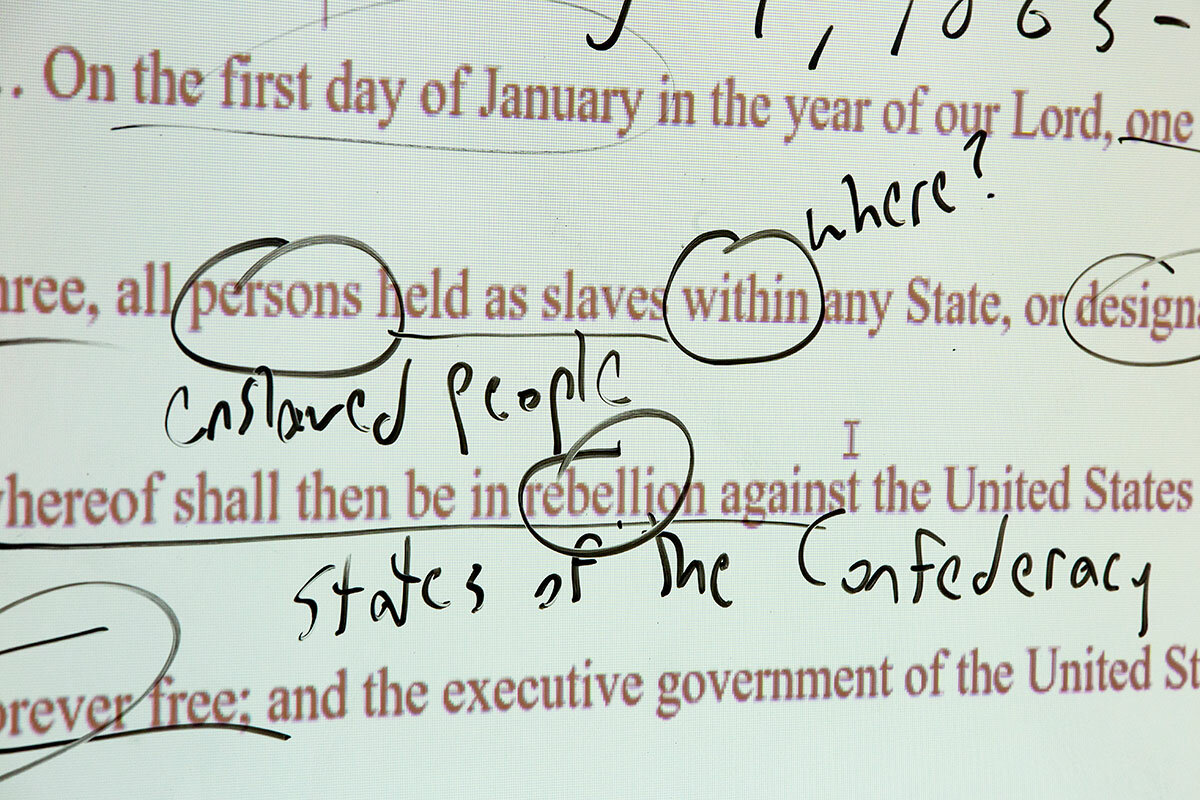 1, 1863 -
. . On the first day of January in the year of our Lord, one
where?
hree, all persons held as slaves within any State, or design
enslaved people
whereof shall then be in rebellion against the United States
states of the Confederacy
orever free; and the executive government of the United St